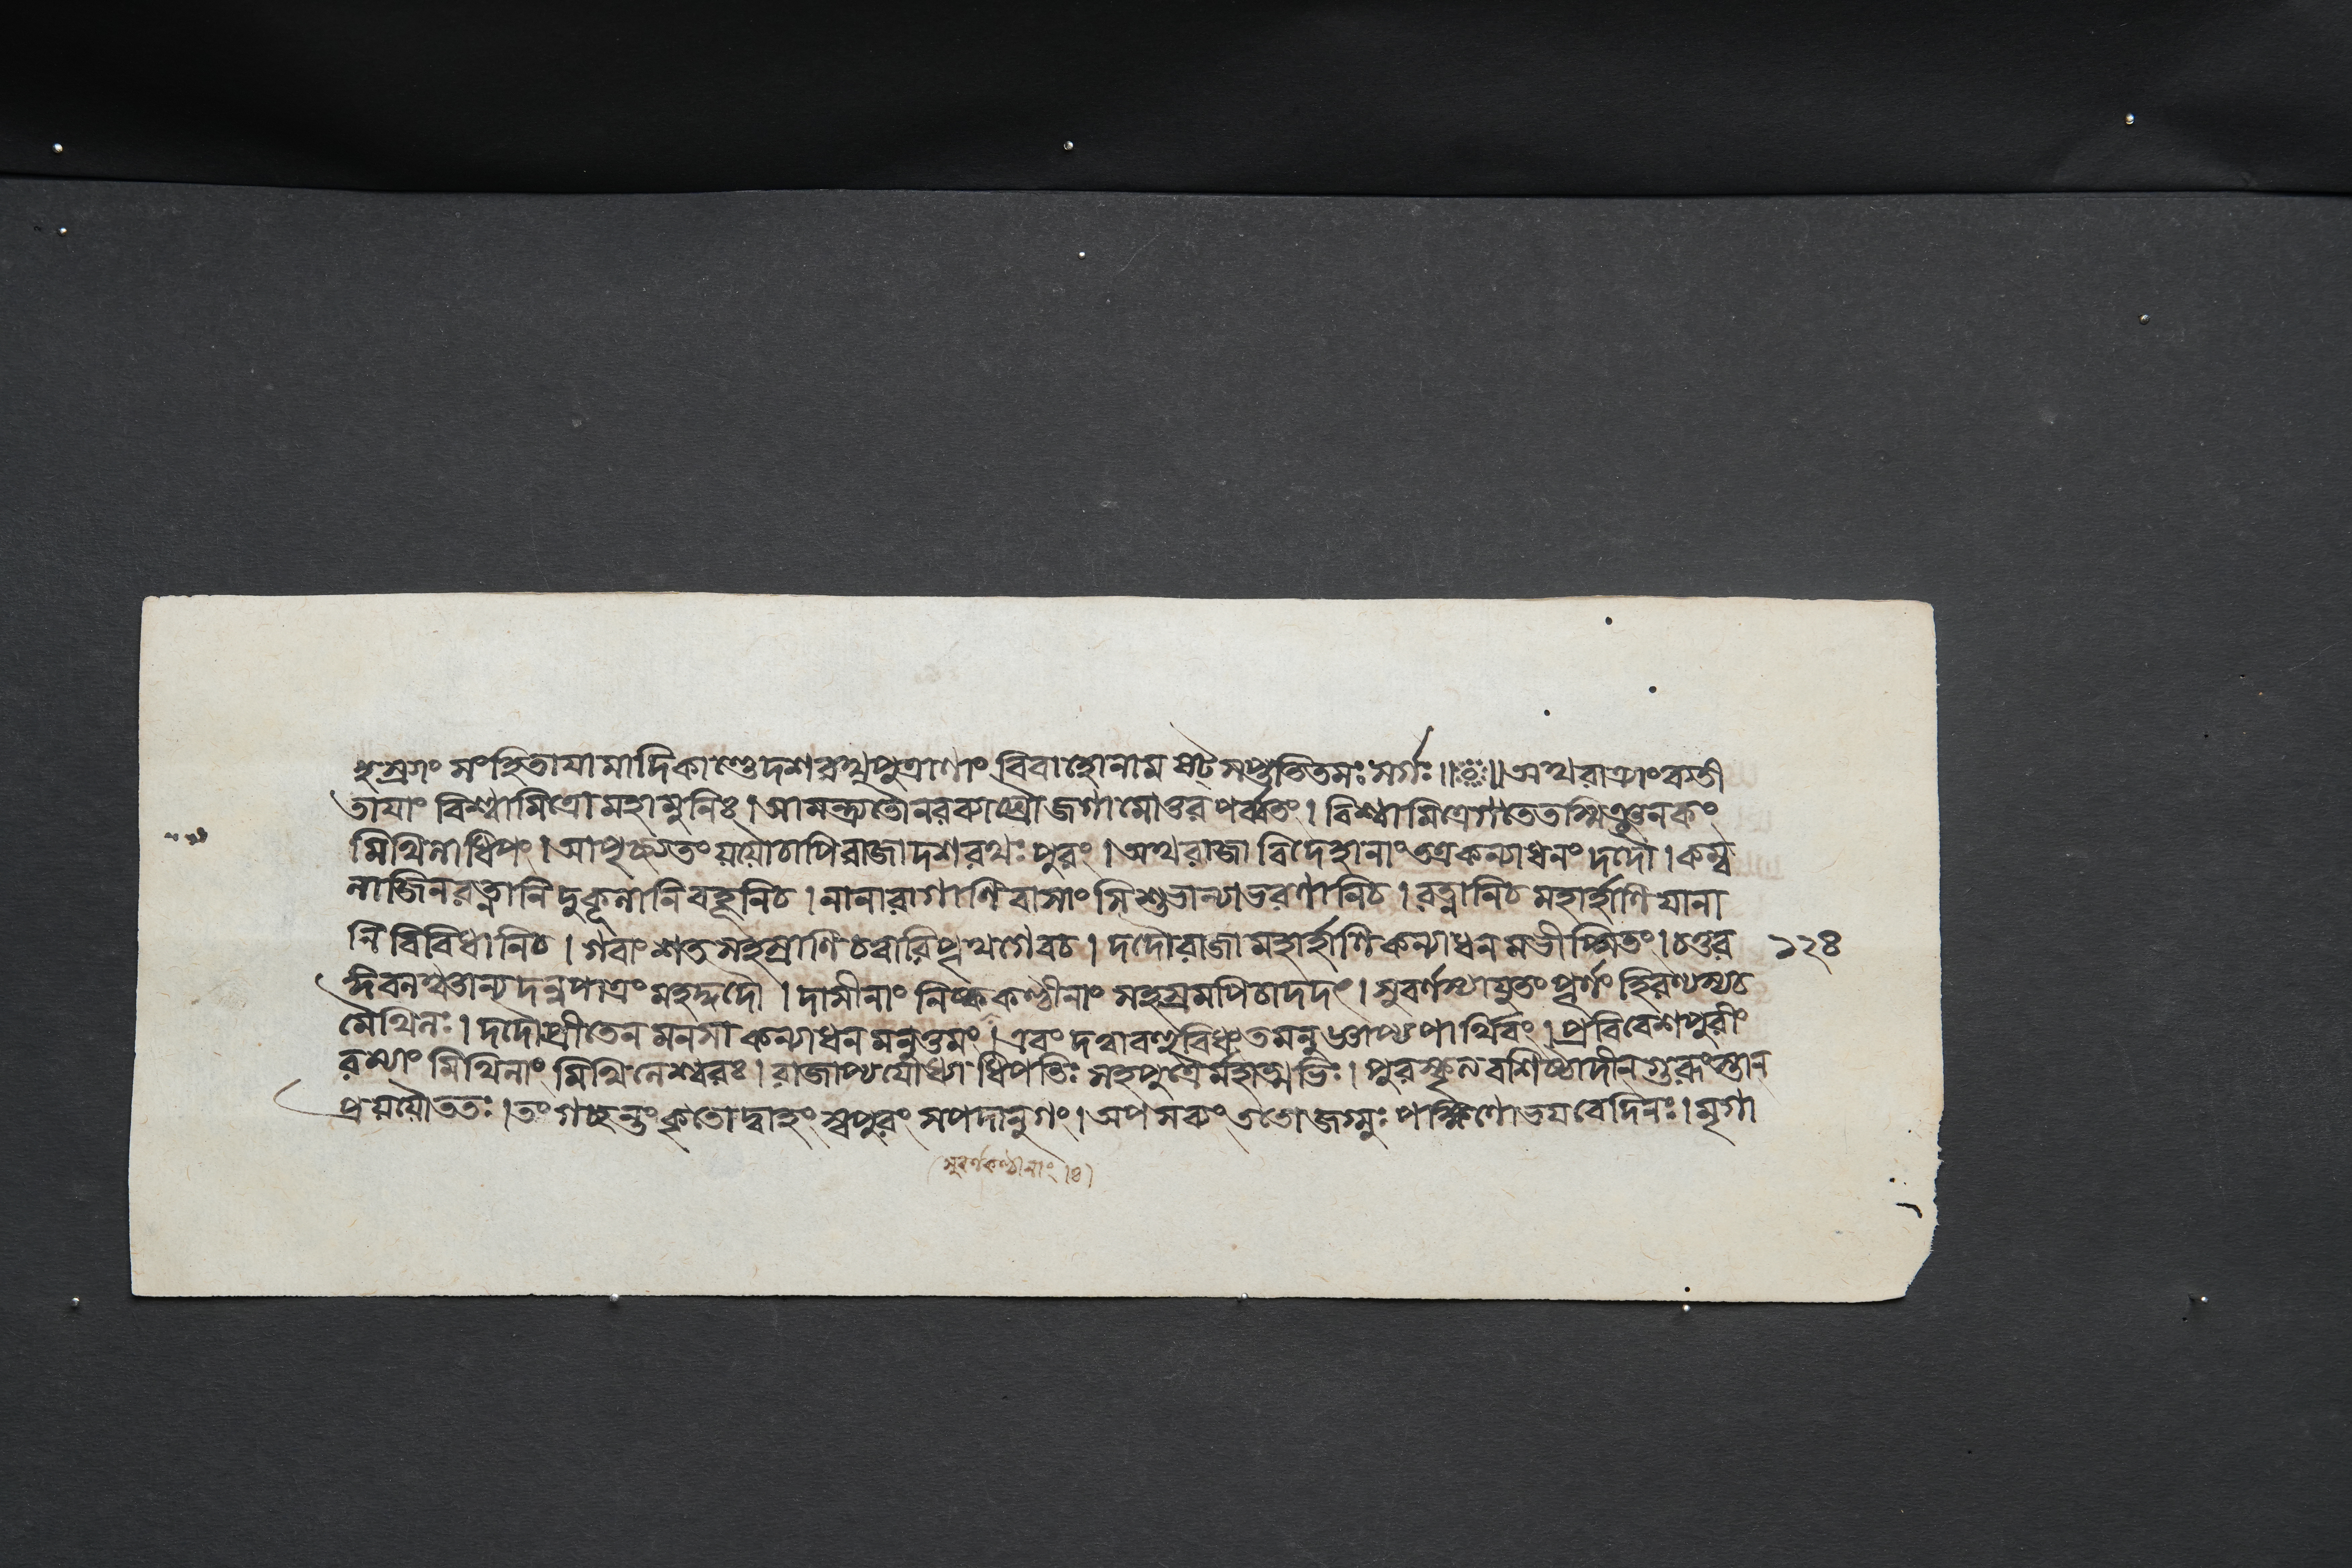 হস্রগং সংহিতাযামাদিকাণ্ডে দশরথপুত্রাণাং বিবাহোনাম ষট্সপ্ততিতমঃ সর্গঃ॥ঃ॥অথরাত্র্যাংব্যতী
তাযাং বিশ্বামিত্রো মহামুনিঃ।আমন্ত্র্যতৌনরব্যাঘ্রৌজগামোত্তরপর্ব্বতং। বিশ্বামিত্রেগতেতস্মিঞ্জনকং
মিথিলাধিপং।আপৃচ্ছ্যতংযযৌচাপিরাজাদশরথঃপুরং।অথরাজা বিদেহানাংতত্রকন্যাধনংদদৌ।কম্ব
লাজিনরত্নানিদুকূলানিবহূনিচ।নানারাগাণিবাসাংসিশুভান্যাভরণানিচ।রত্নানিচমহার্হাণিযানা
নিবিবিধানিচ।গবাংশতসহস্রাণিচত্বারিপৃথগেবচ।দদৌরাজামহার্হাণিকন্যাধনমভীপ্সিতং।চতুর ১২৪
ঙ্গিবলঞ্চান্যদন্নপাত্রংমহদ্দদৌ।দাসীনাং নিষ্ককণ্ঠীনাংসহস্রমপিচাদদৎ।সুবর্ণস্যাযুতংপূর্ণংহিরণ্যস্যচ
মৈথিলঃ।দদৌপ্রীতেনমনসাকন্যাধনমনুত্তমং।এবংদত্বাবহুবিধংতমনুজ্ঞাপ্যপার্থিবং।প্রবিবেশপুরীং
রম্যাং মিথিলাং মিথিলেশ্বরঃ।রাজাপ্যযোধ্যাধিপতিঃসহপুত্রৈর্মহাত্মভিঃ।পুরস্কৃত্যবশিষ্ঠাদীনগুরূংস্তান
প্রযযৌততঃ।তংগচ্ছন্তংকৃতোদ্বাহংস্বপুরংসপদানুগং।অপসব্যংততোজগ্মুঃপক্ষিণোভযবেদিনঃ।মৃগা
(সুবর্ণকণ্ঠীনাং।৪)